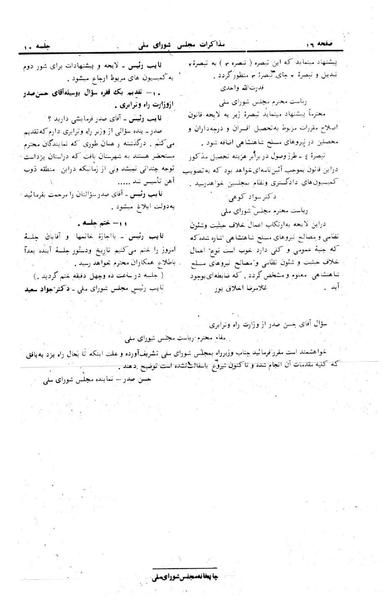 صفحه ۱۶
مذاکرات مجلس شورای ملی
جلسه ۱۰
پیشنهاد مینماید که این تبصره (تبصره ۳) به تبصره
تبدیل و تبصره ۴ بجای تبصره ۳ منظور گردد.
قدرت‌الله واحدی
ریاست محترم مجلس شورای ملی
محترماً پیشنهاد مینماید تبصره زیر به لایحه قانون
اصلاح مقررات مربوط به تحصیل افسران و درجه‌داران و
محصلین در نیروهای مسلح شاهنشاهی اضافه شود.
تبصره ۴ - طرز وصول در برابر هزینه تحصیل مذکور
دراین قانون بموجب آئین‌نامه‌ای خواهد بود که به تصویب
کمیسیون‌های دادگستری و نظام مجلسین خواهد رسید.
دکتر سواد کوهی
ریاست محترم مجلس شورای ملی
دراین لایحه به ارتکاب اعمال خلاف حیثیت و شئون
نظامی و مصالح نیروهای مسلح شاهنشاهی اشاره شده که
که جنبه عمومی و کلی دارد خوب است نوع اعمال
خلاف حیثیت و شئون نظامی و مصالح نیروهای مسلح
شاهنشاهی معلوم و مشخص گردد. که ضابطه‌ای بوجود
آید. غلامرضا اخلاق پور
نایب رئیس - لایحه و پیشنهادات برای شور دوم
به کمیسیون های مربوط ارجاع میشود.
۱۰- تقدیم یک فقره سؤال بوسیله آقای حسن صدر
از وزارت راه و ترابری.
نایب رئیس - آقای صدر فرمایشی دارید ؟
صدر - بنده سؤالی از وزیر راه و ترابری دارم که تقدیم
میکنم. درگذشته و همان طوری که نمایندگان محترم
مستحضر هستند به شهرستان یافت که دراستان یزد است
توجه چندانی نمیشده تا اینکه دراین منطقه ذوب
آهن تأسیس شد ......
نایب رئیس - آقای صدر سؤالتان را مرحمت بفرمائید
به دولت ابلاغ میشود.
۱۱- ختم جلسه.
نایب رئیس - بااجازهٔ خانمها و آقایان جلسهٔ
امروز را ختم می‌کنیم تاریخ و دستور جلسه آینده بعداً
باطلاع همکاران محترم خواهد رسید.
(جلسه در ساعت ده و چهل دقیقه ختم گردید)
نایب رئیس مجلس شورای ملی - دکتر جواد سعید
سؤال آقای حسن صدر از وزارت راه و ترابری
مقام محترم ریاست مجلس شورای ملی
خواهشمند است مقرر فرمائید جناب وزیر راه بمجلس شورای ملی تشریف آورده و علت اینکه تا بحال راه یزد به بافق
که کلیه مقدمات آن انجام شده و تاکنون شروع باسفالت نشده است توضیح دهند.
حسن صدر - نماینده مجلس شورای ملی
چاپخانه مجلس شورای ملی